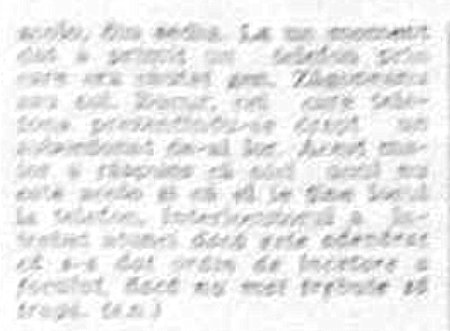 acolo, din sediu. La un moment
dat a primit un telefon prin
care era căutat gen.
sau col. cel care tele-
fona prezentîndu-se drept un
subordonat de-al lor. Acest ma-
ior a răspuns că nici unul nu
este acolo și că el le ține locul
la telefon. Interlocutorul a în-
trebat atunci dacă este adevărat
că s-a dat ordin de încetare a
focului, dacă nu mai trebuie să
tragi. (n.n.)